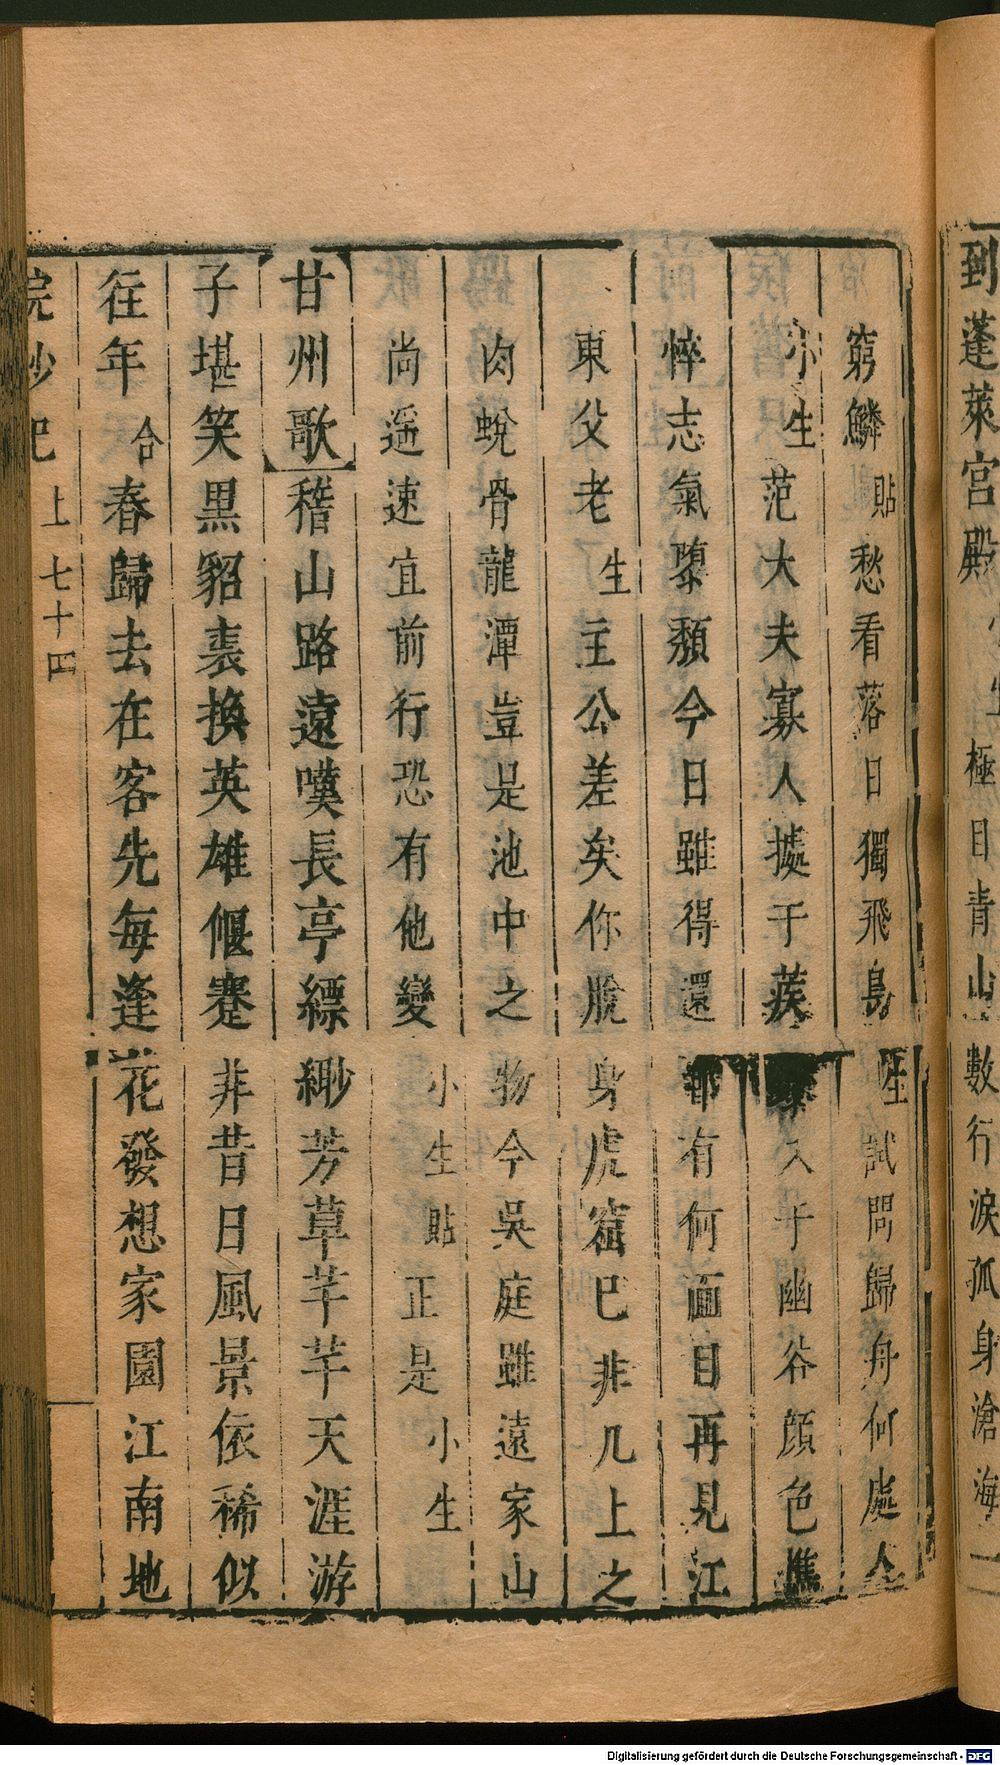 到蓬萊宮殿 小生 極目青山數行淚孤身滄海一
窮鱗 貼 愁看落日獨飛鳥 生 試問歸舟何處人
小生 范大夫寡人據于蒺藜入于幽谷顔色憔
悴志氣隳頹今日雖得還鄉有何面目再見江
東父老 生 主公差矣你脫身虎窟已非几上之
肉蛻骨龍潭豈是池中之物今吳庭雖遠家山
尚遥速宜前行恐有他變 小生貼 正是 小生
甘州歌 稽山路遠嘆長亭縹緲芳草芊芊天涯游
子堪笑黑貂裘換英雄偃蹇非昔日風景依稀似
往年 合 春歸去在客先每逢花發想家園江南地
浣紗記 上 七十四
Digitalisierung gefördert durch die Deutsche Forschungsgemeinschaft - DFG